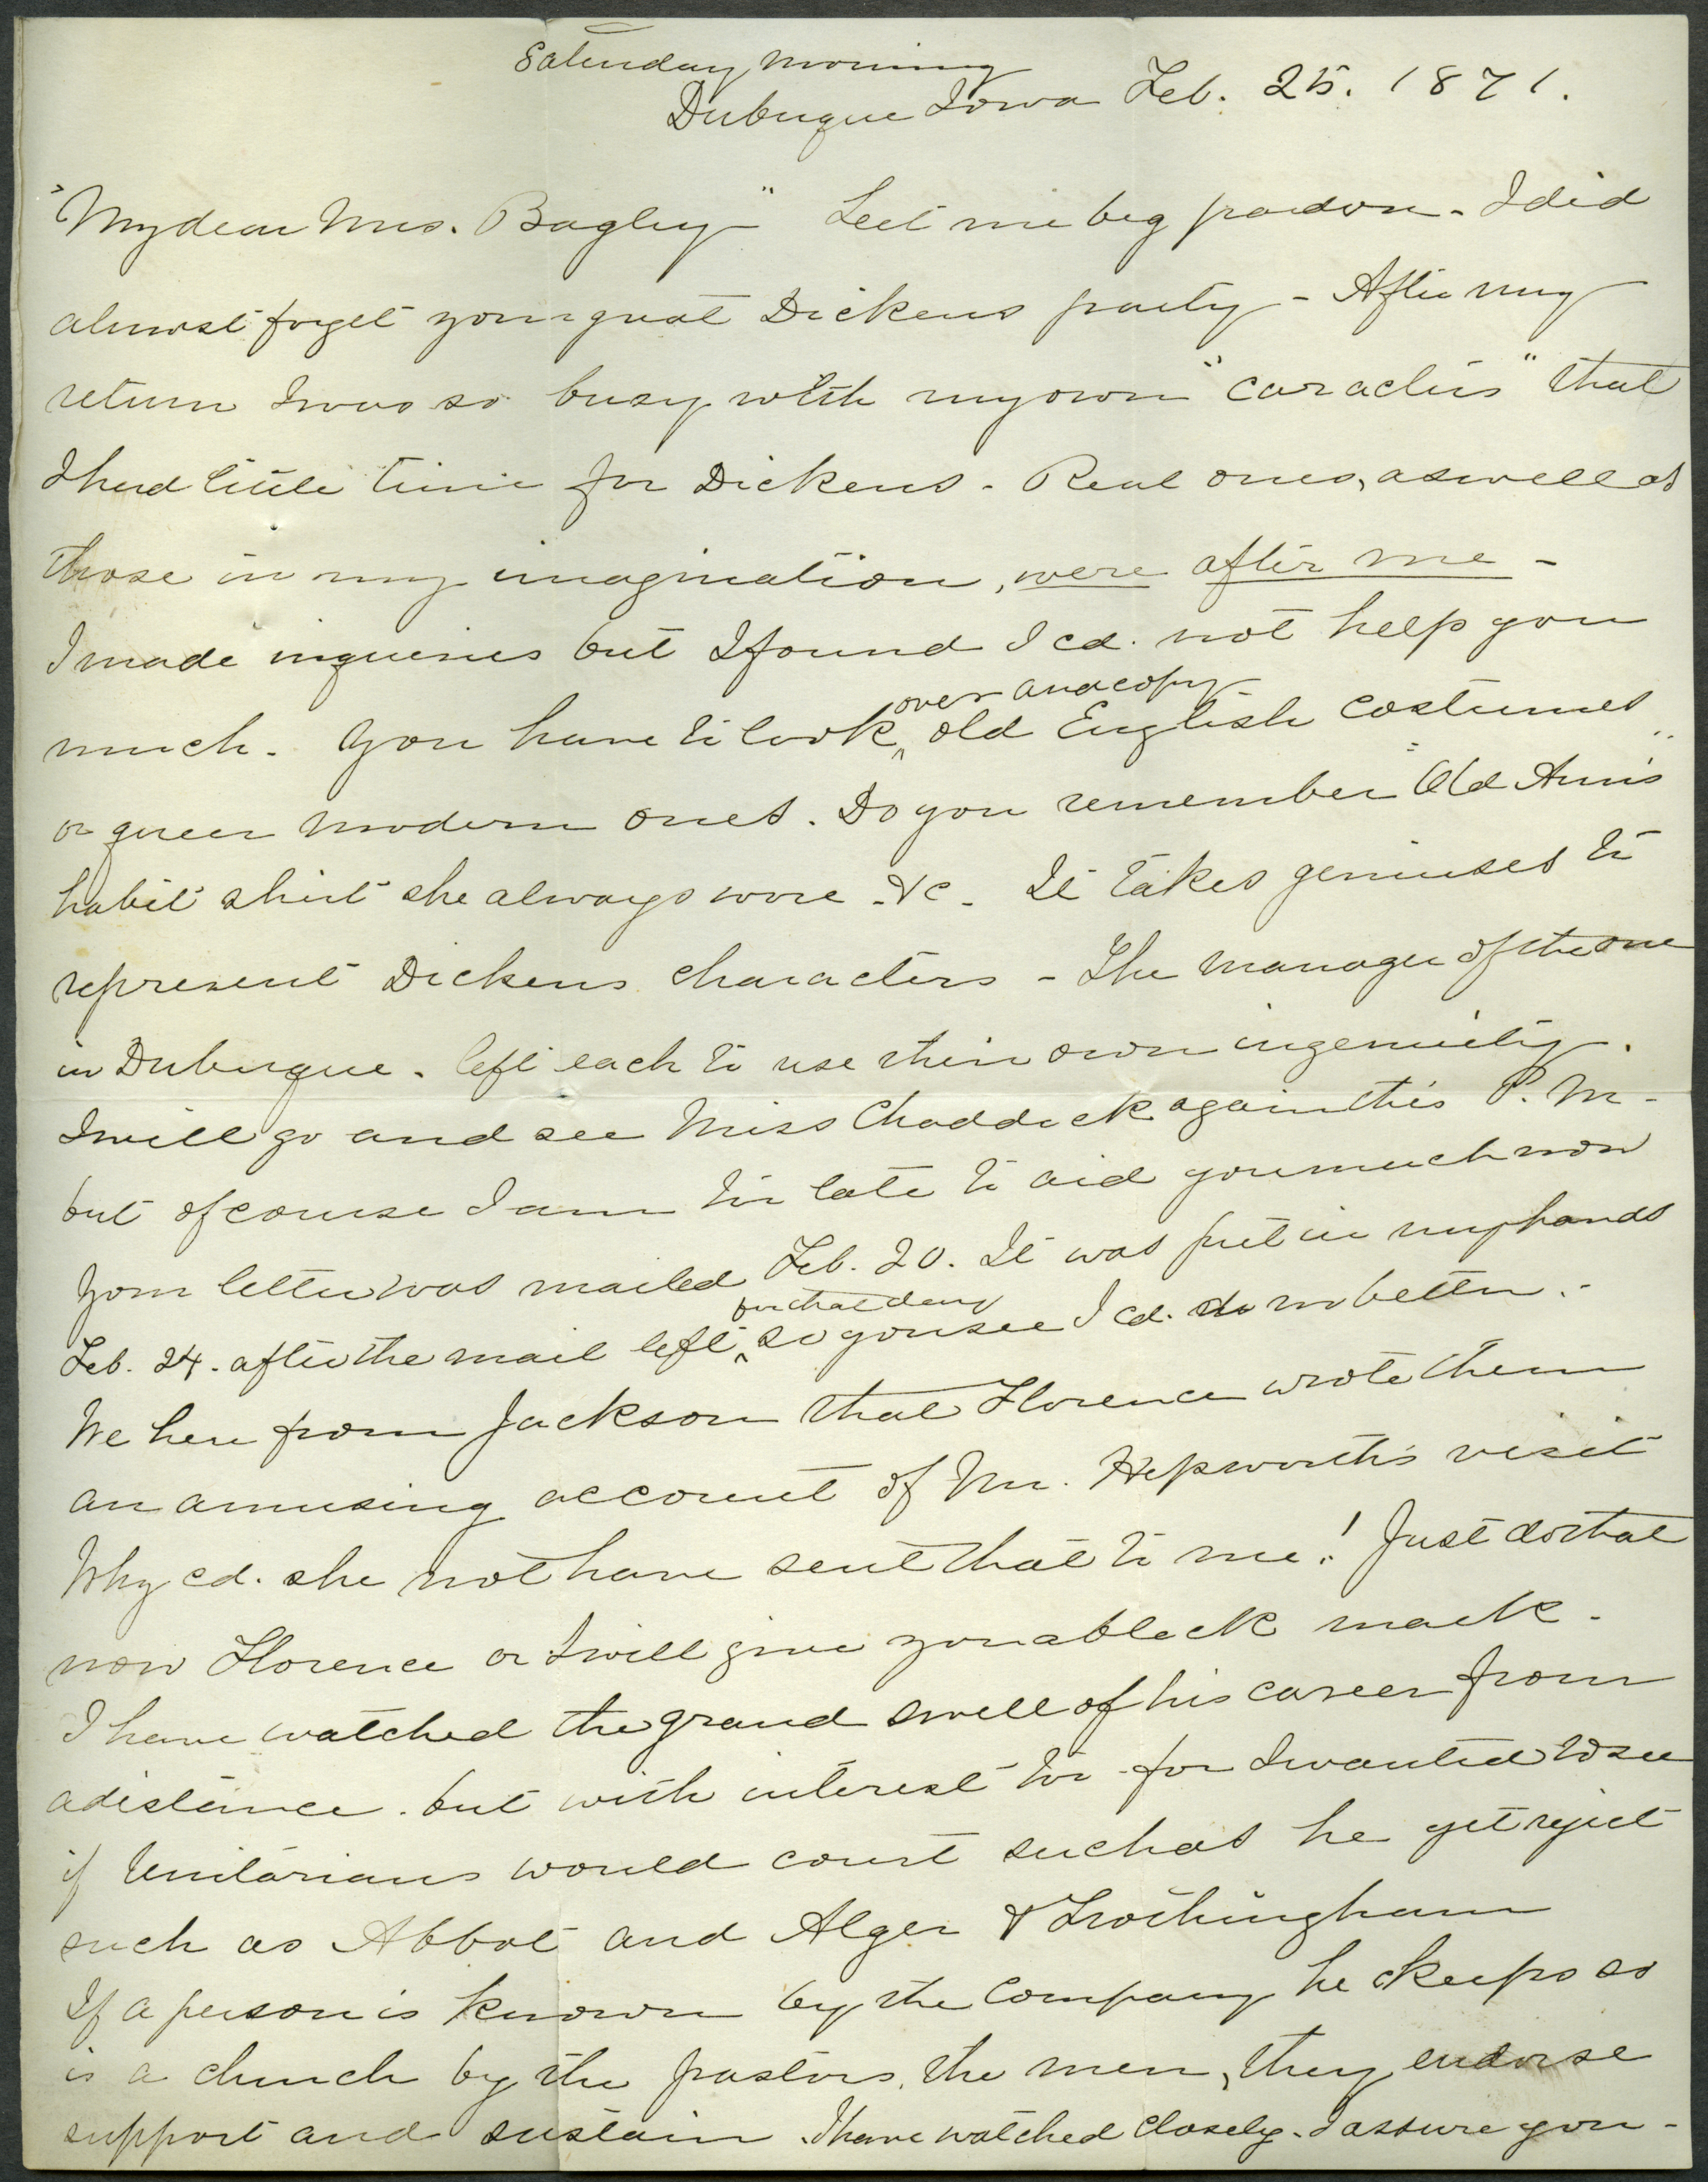 Saturday morning
Dubuque Iowa Feb. 25. 1871.
"My dear Mrs. Bagley" Let me beg pardon - I did
almost forget your great Dickens party - After my
return I was so busy with my own "caracters" that
I had little time for Dickens - Real ones, as well as
those in my imagination, were after me -
I made inquiries but I found I cd. not help you
over and copy
much - You have to look ^ old English costumes
or queer modern ones. Do you remember "Old Ann's"
habit shirt she always wore - &c - It takes geniuses to
represent Dickens characters - The manager of the one
in Dubuque - left each to use their own ingenuity.
I will go and see Miss Chaddock again this P.M -
but of course I am too late to aid you much now
Your letter was mailed Feb. 20. It was put in my hands
for that day
Feb. 24. after the mail left ^ so you see I cd. do no better. -
We hear from Jackson that Florence wrote them
an amusing account of Mr. Hepworth's visit
Why cd. she not have sent that to me! Just do that
now Florence or I will give you a black mark -
I have watched the grand swell of his career from
a distance. but with interest too - for I wanted to see
if Unitarians would court such as he yet reject
such as Abbot and Alger & Frothingham
If a person is known by the company he keeps so
is a church by the pastors, the men, they endorse
support and sustain. I have watched closely - I assure you -